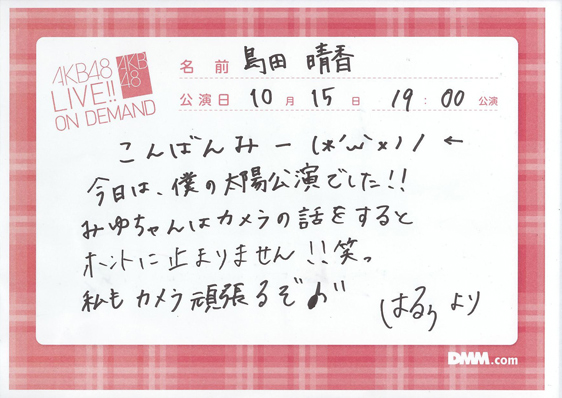 AKB48
LIVE!!
ON DEMAND
AKB
48
名前 島田 晴香
公演日 10月 15日 19:00 公演
こんばんみー (*´ω`×)ノ ←
今日は、僕の太陽公演でした!!
みゆちゃんはカメラの話をすると
ホントに止まりません!!笑っ
私もカメラ頑張るぞ♪"
はるぅ より
DMM.com